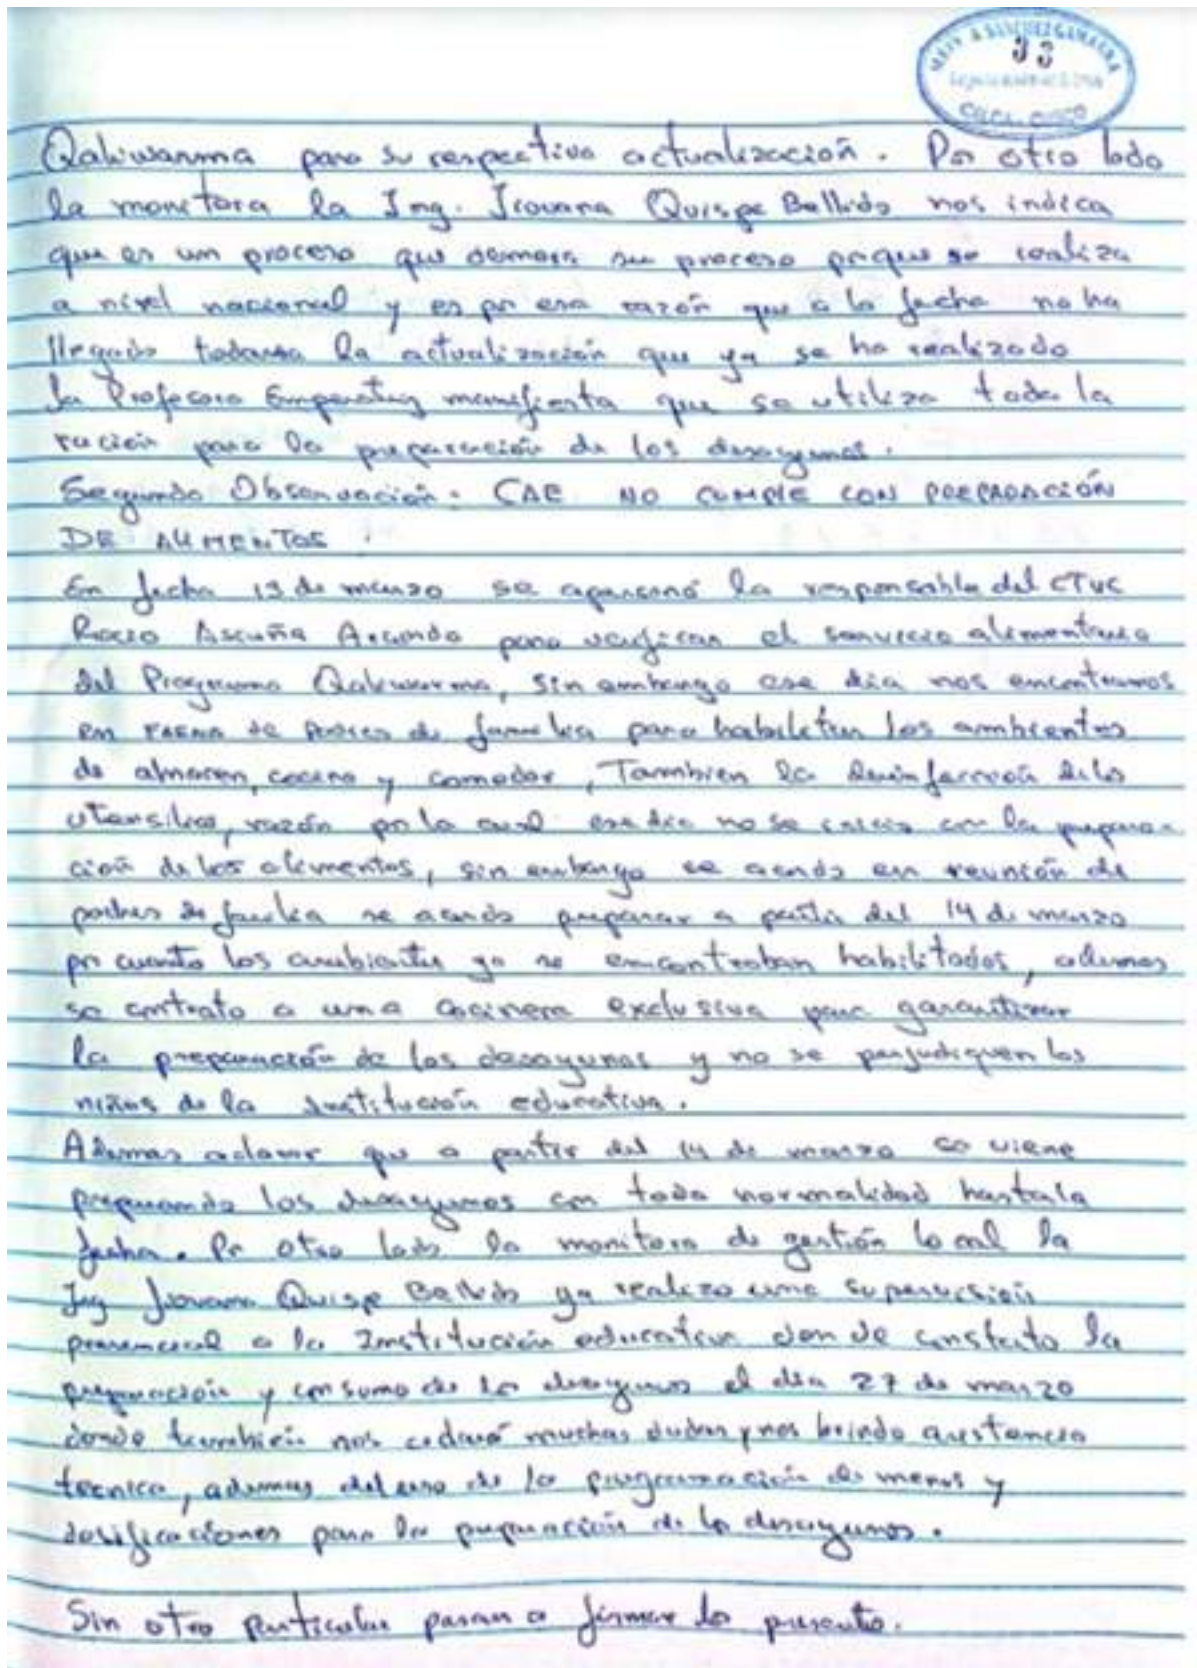 33
CALCA - CUSCO
Qaliwarma para su respectiva actualización. Por otro lado
la monitora la Ing. Jiovana Quispe Bellido nos indica
que es un proceso que demora su proceso porque se realiza
a nivel nacional y es por esa razón que a la fecha no ha
llegado todavia la actualización que ya se ha realizado
la Profesora Emperatriz manifiesta que se utiliza toda la
ración para la preparación de los desayunos.
Segunda Observación: CAE NO CUMPLE CON PREPARACIÓN
DE ALIMENTOS.
En fecha 13 de marzo se apersonó la responsable del CTVC
Rocio Ascuña para verificar el servicio alimentario
del Programa Qaliwarma, sin embargo ese dia nos encontramos
en FAENA de Padres de familia para habilitar los ambientes
de almacen, cocina y comedor, Tambien la desinfección de los
utensilios, razón por la cual ese dia no se inicio con la prepara-
ción de los alimentos, sin embargo se acordo en reunión de
padres de familia se acordo preparar a partir del 14 de marzo
por cuanto los ambientes ya se encontraban habilitados, ademas
se contrato a una cocinera exclusiva para garantizar
la preparación de los desayunos y no se perjudiquen los
niños de la institución educativa.
Ademas aclarar que a partir del 14 de marzo se viene
preparando los desayunos con toda normalidad hasta la
fecha. Por otro lado la monitora de gestión local la
Ing Jiovana Quispe Bellido ya realizo una supervisión
presencial a la Institución educativa donde constato la
preparación y consumo de los desayunos el dia 27 de marzo
donde también nos aclaró muchas dudas y nos brindo asistencia
tecnica, ademas del uso de la programación de menus y
dosificaciones para la preparación de los desayunos.
Sin otro particular pasan a firmar la presente.